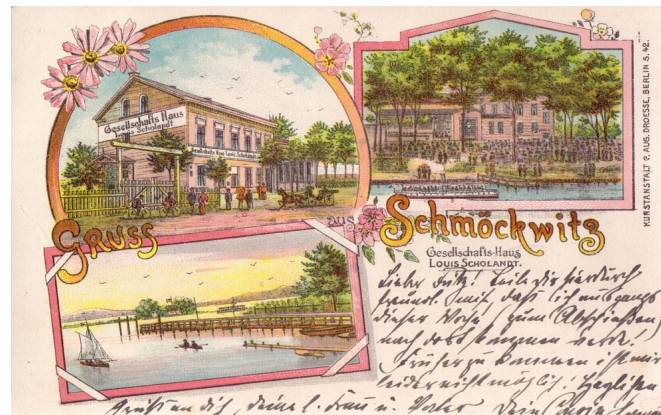 Gesellschafts Haus
Louis Scholandt
Gesellschafts Haus Louis Scholandt
GRUSS
aus
Schmöckwitz
Gesellschafts-Haus
LOUIS SCHOLANDT.
KUNSTANSTALT P. AUG. DROESSE, BERLIN S. 42.
Lieber Fritz! Teile dir hierdurch
freundl. mit daß ich anfangs
dieser Woche zum Abschießen
nach dort kommen werde.
Früher zu kommen ist mir
leider nicht möglich! Herzlichen
Gruß an dich, deine l. Frau u. Vater